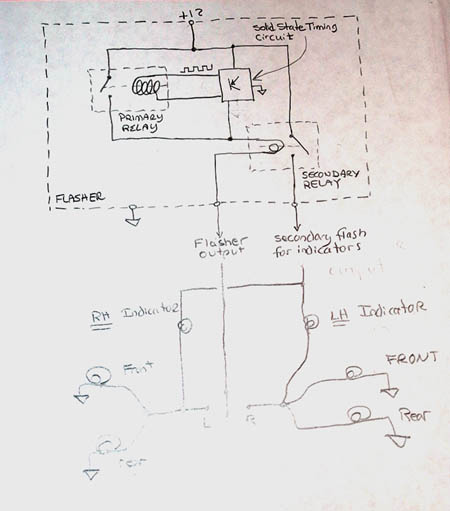 +12
Solid State Timing
Circuit
PRIMARY
RELAY
SECONDARY
RELAY
FLASHER
Flasher
output
secondary flash
for indicators
RH Indicator
LH Indicator
Front
FRONT
L
R
Rear
Rear